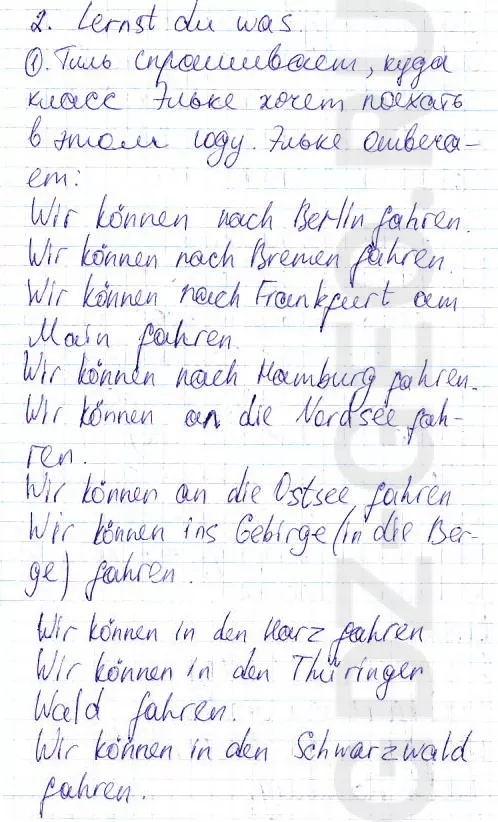 2. Lernst du was
①. Тиль спрашивает, куда
класс Эльке хочет поехать
в этом году. Эльке отвеча-
ет:
Wir können nach Berlin fahren.
Wir können nach Bremen fahren.
Wir können nach Frankfurt am
Main fahren.
Wir können nach Hamburg fahren.
Wir können an die Nordsee fah-
ren.
Wir können an die Ostsee fahren
Wir können ins Gebirge (in die Ber-
ge) fahren.
Wir können in den Harz fahren
Wir können in den Thüringer
Wald fahren.
Wir können in den Schwarzwald
fahren.
GDZ-GEO.RU